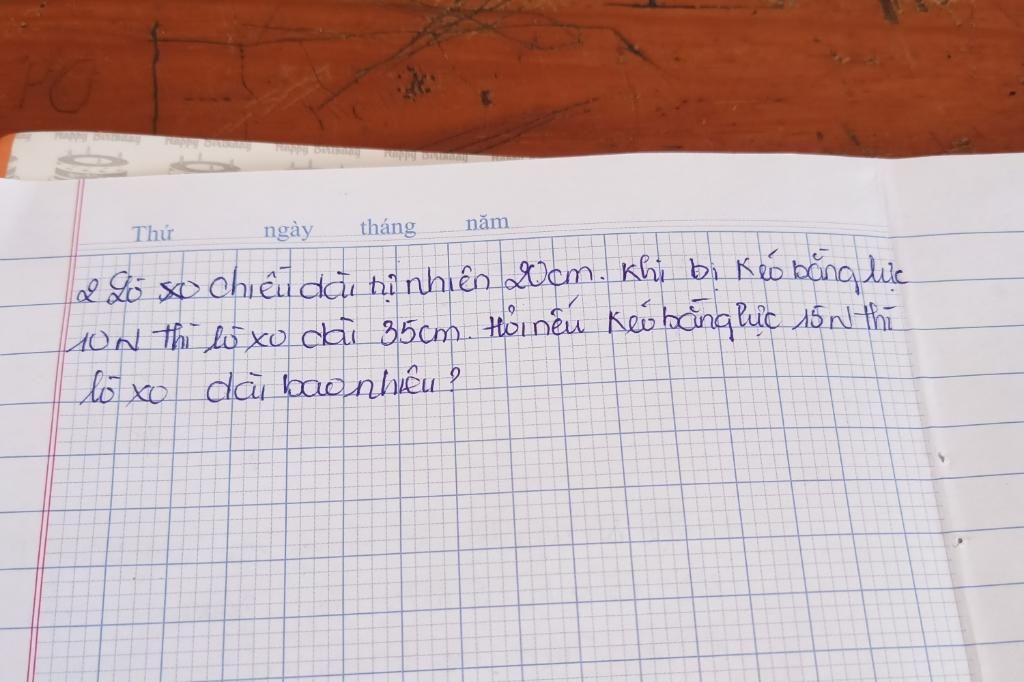 Happy Birthday Happy Birthday Happy Birthday Happy Birthday
Thứ ngày tháng năm
2 Lò xo chiều dài tự nhiên 20cm. Khi bị kéo bằng lực
10N thì lò xo dài 35cm. Hỏi nếu kéo bằng lực 15N thì
lò xo dài bao nhiêu?